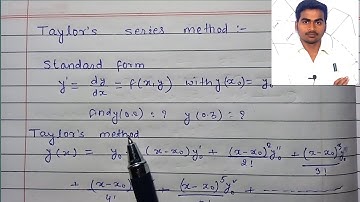 Taylor's series method :-
Standard form
y' = dy/dx = f(x,y) with y(x₀) = y₀
find y(0.2) = ? y(0.3) = ?
Taylor's method
y(x) = y₀ (x-x₀)y₀' + (x-x₀)²y₀''/2! + (x-x₀)³y₀'''/3!
+ (x-x₀)/4! + (x-x₀)⁵y₀ᵛ